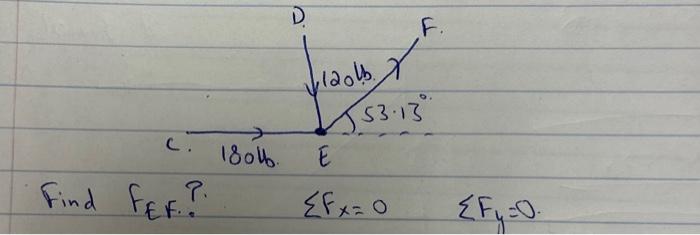 D.
F.
120lb.
53.13°
C.
180lb.
E
Find FEF.?
ΣFx=0
ΣFy=0.